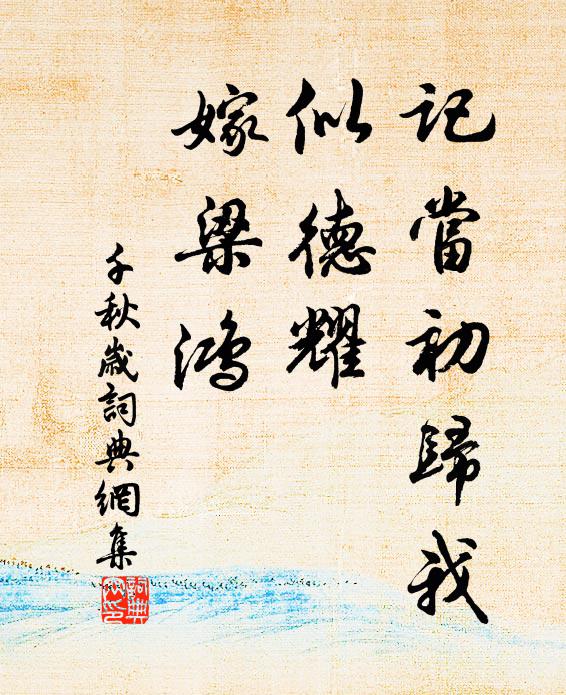 記當初歸我
似德耀
嫁梁鴻
千秋歲詞典網集